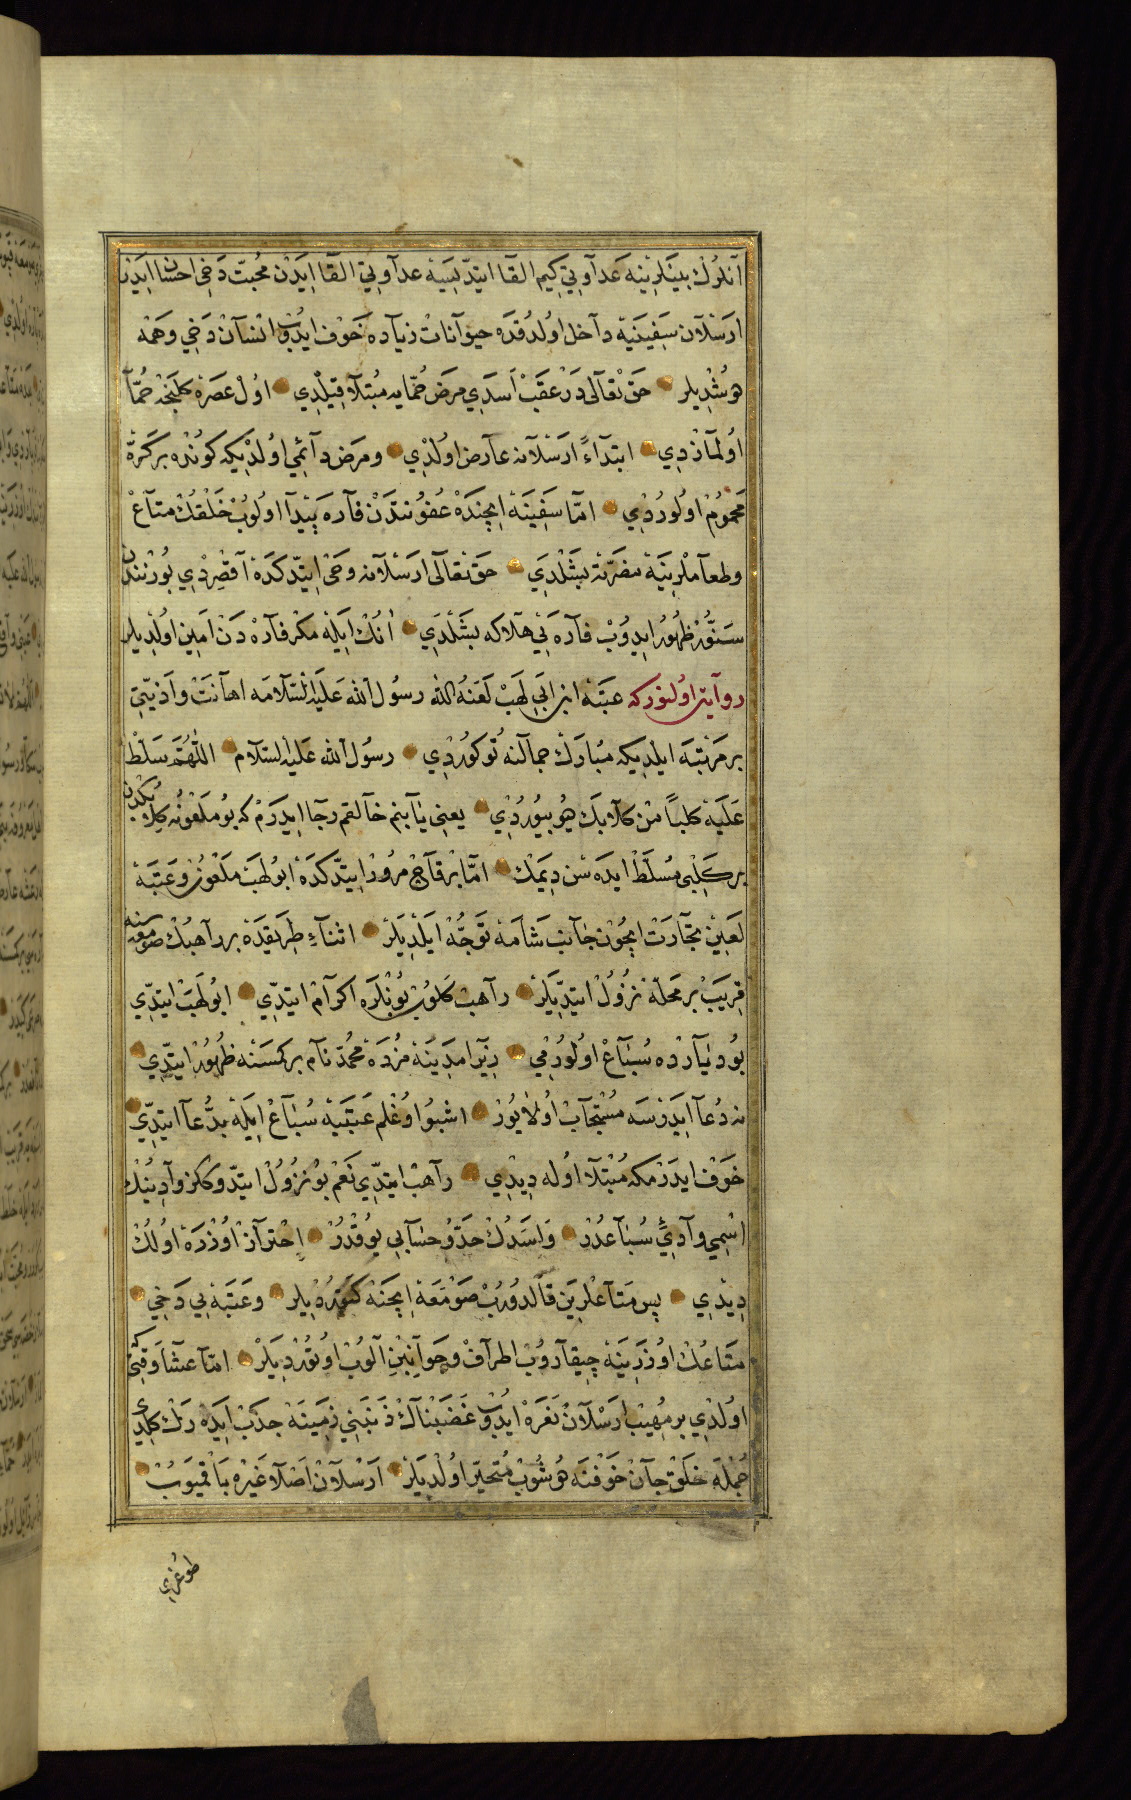 آنلرُك بينلرِينه عَداَوتي كيم القآ ايتدِ يسَيه عدآوتي القآ ايَدن محُبت دَخي احسان ايَدن
ارَسْلآن سَفِينَيه دآخل اولدُقده حيوآنات زيآده خَوْف ايدُب انسآن دَخي وَهمْه
دوشْدِيلر حَق تقآلى دَرْعقَبْ اَسَدِي مرَض حُمّايه مُبتلآ قِيلْدِي اولْ عصَره كلِنجَه حُمّآ
اوُلمآزدِي ابتدآءً ارَسْلآنه عآرض اولدِي ومرَض دآئمي اولدِيكه كوُنْده بر كَرةّ
مَحْموُم اولوُردُي امّا سَفِينَه اِيچندَه عُفوُنتدَن فآره پَيدآ اولوُبْ خَلقُك متآعْ
وطعآملرِينَيه مضَرّته بَشْلدَي حق تعآلى ارَسْلآنه وَحَى ايتدّكدَه آقصِردِي بوُرْنندن
سَنوُّر ظهُوُر ايدوُبْ فآره يي هلآكه بشَلْدَي انُك ايلِه مكر فآره دَن اَمِين اولدِيلر
روآيت اولنوركه عتبَه ابن ابَي لهَبْ لَعَنهُ الله رسوُل الله عَليَه السّلآمه اهآنَت وآذيتّي
بر مَرتبَه ايلدِيكه مُبارَك جمآلنه توُكوُردِي رسوُل الله عَليَه السّلآم اللهُمّ سَلّطْ
عَلَيه كلباً مْن كلآبكَ ديُو بيوُردُي يعنِى يآ بنم خآلقم رجآ ايدرَم كه بو ملعوُنه كلآبكدن
بر كَلْبى مُسلّطْ ايدَه سْن دِيَمك امّا برَ قآچ مرُور ايتدّكدَه ابوُ لهَبَ ملعوُن وعَتبَه
لَعِين تجآرَت ايچُون جآنب شآمَه توَجّهْ ايلدِيلَر اثنآءِ طَرِيقدَه بر رآهبُك صوَمَعه سنه
قرِيبْ بر محَلّه نزُوُل ايتدِيلَر رآهب كَلوُب بوُنلرَه اكرآم ايتدِي ابوُ لهَب ايتدّي
بوُ ديآرْده سُبَاعْ اولوُرمِي زِيَرا مدَينه مُزدَه محُمدّ نآم بر كمسَنه ظهُوُر ايتدّي
نه دُعآ ايَدرسَه مُستجآب اولآيوُر اشبُو اوُغلم عَتبَيه سُبَاع ايَلَه بدُّعآ ايتدِّي
خَوْف ايدَر مكه مُبتلآ اوله دِيدِي رآهب ايتدِّي نعَم بوُ نزُوُل ايتدّوككز وآدِينُك
اسْمي وآدىِٔ سُبآعْدُر وَاسَدُك حَدّ وُحسآبي يوُقدُر اِحْترآز اوُزْرَه اولُك
دِيدَي پس متآعْلرِينَ قآلدوُرُبْ صَوْمَعَه اِيچنَه كتوُردِيلر وعَتبَه يي دَخي
متَاعُك اوُزرِينَه چِيقآروُب اطرآفْ وجَوآنِبْين آلوُب اوُتوُردِيلَر امّا عشآ وَقتي كه
اولدُي بر مهُيب ارَسْلآن نعَرَه ايدُب غَضبنآك ذَنبَني زمِينَه جذَب ايَدَه رَك كلدِي
جُمْلَه خَلق جآن خَوْفنَه دوُشوُب مُتحيّر اولدِيلَر ارَسْلآن اصْلآ غَيره بآقميَوُب
طوُغرِي